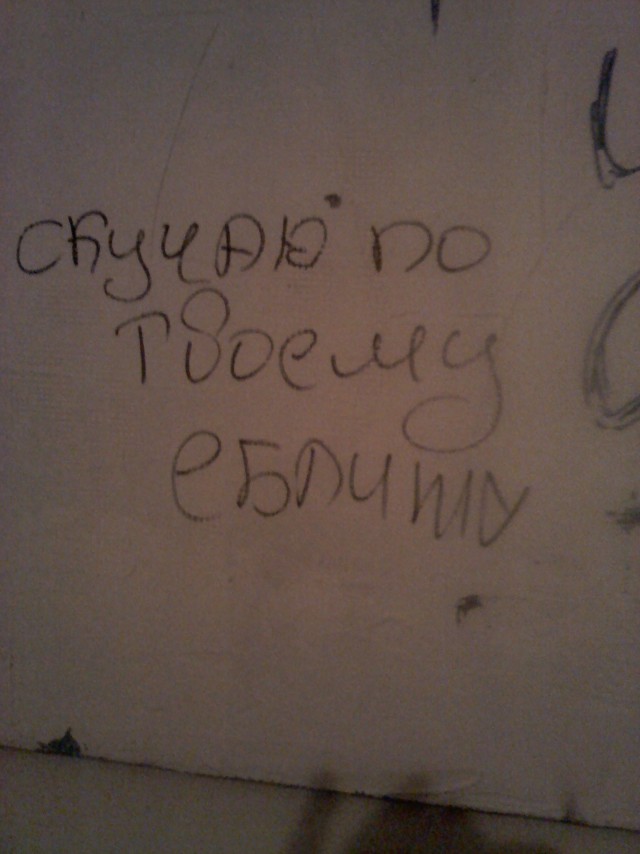 скучаю по
твоему
еблишу